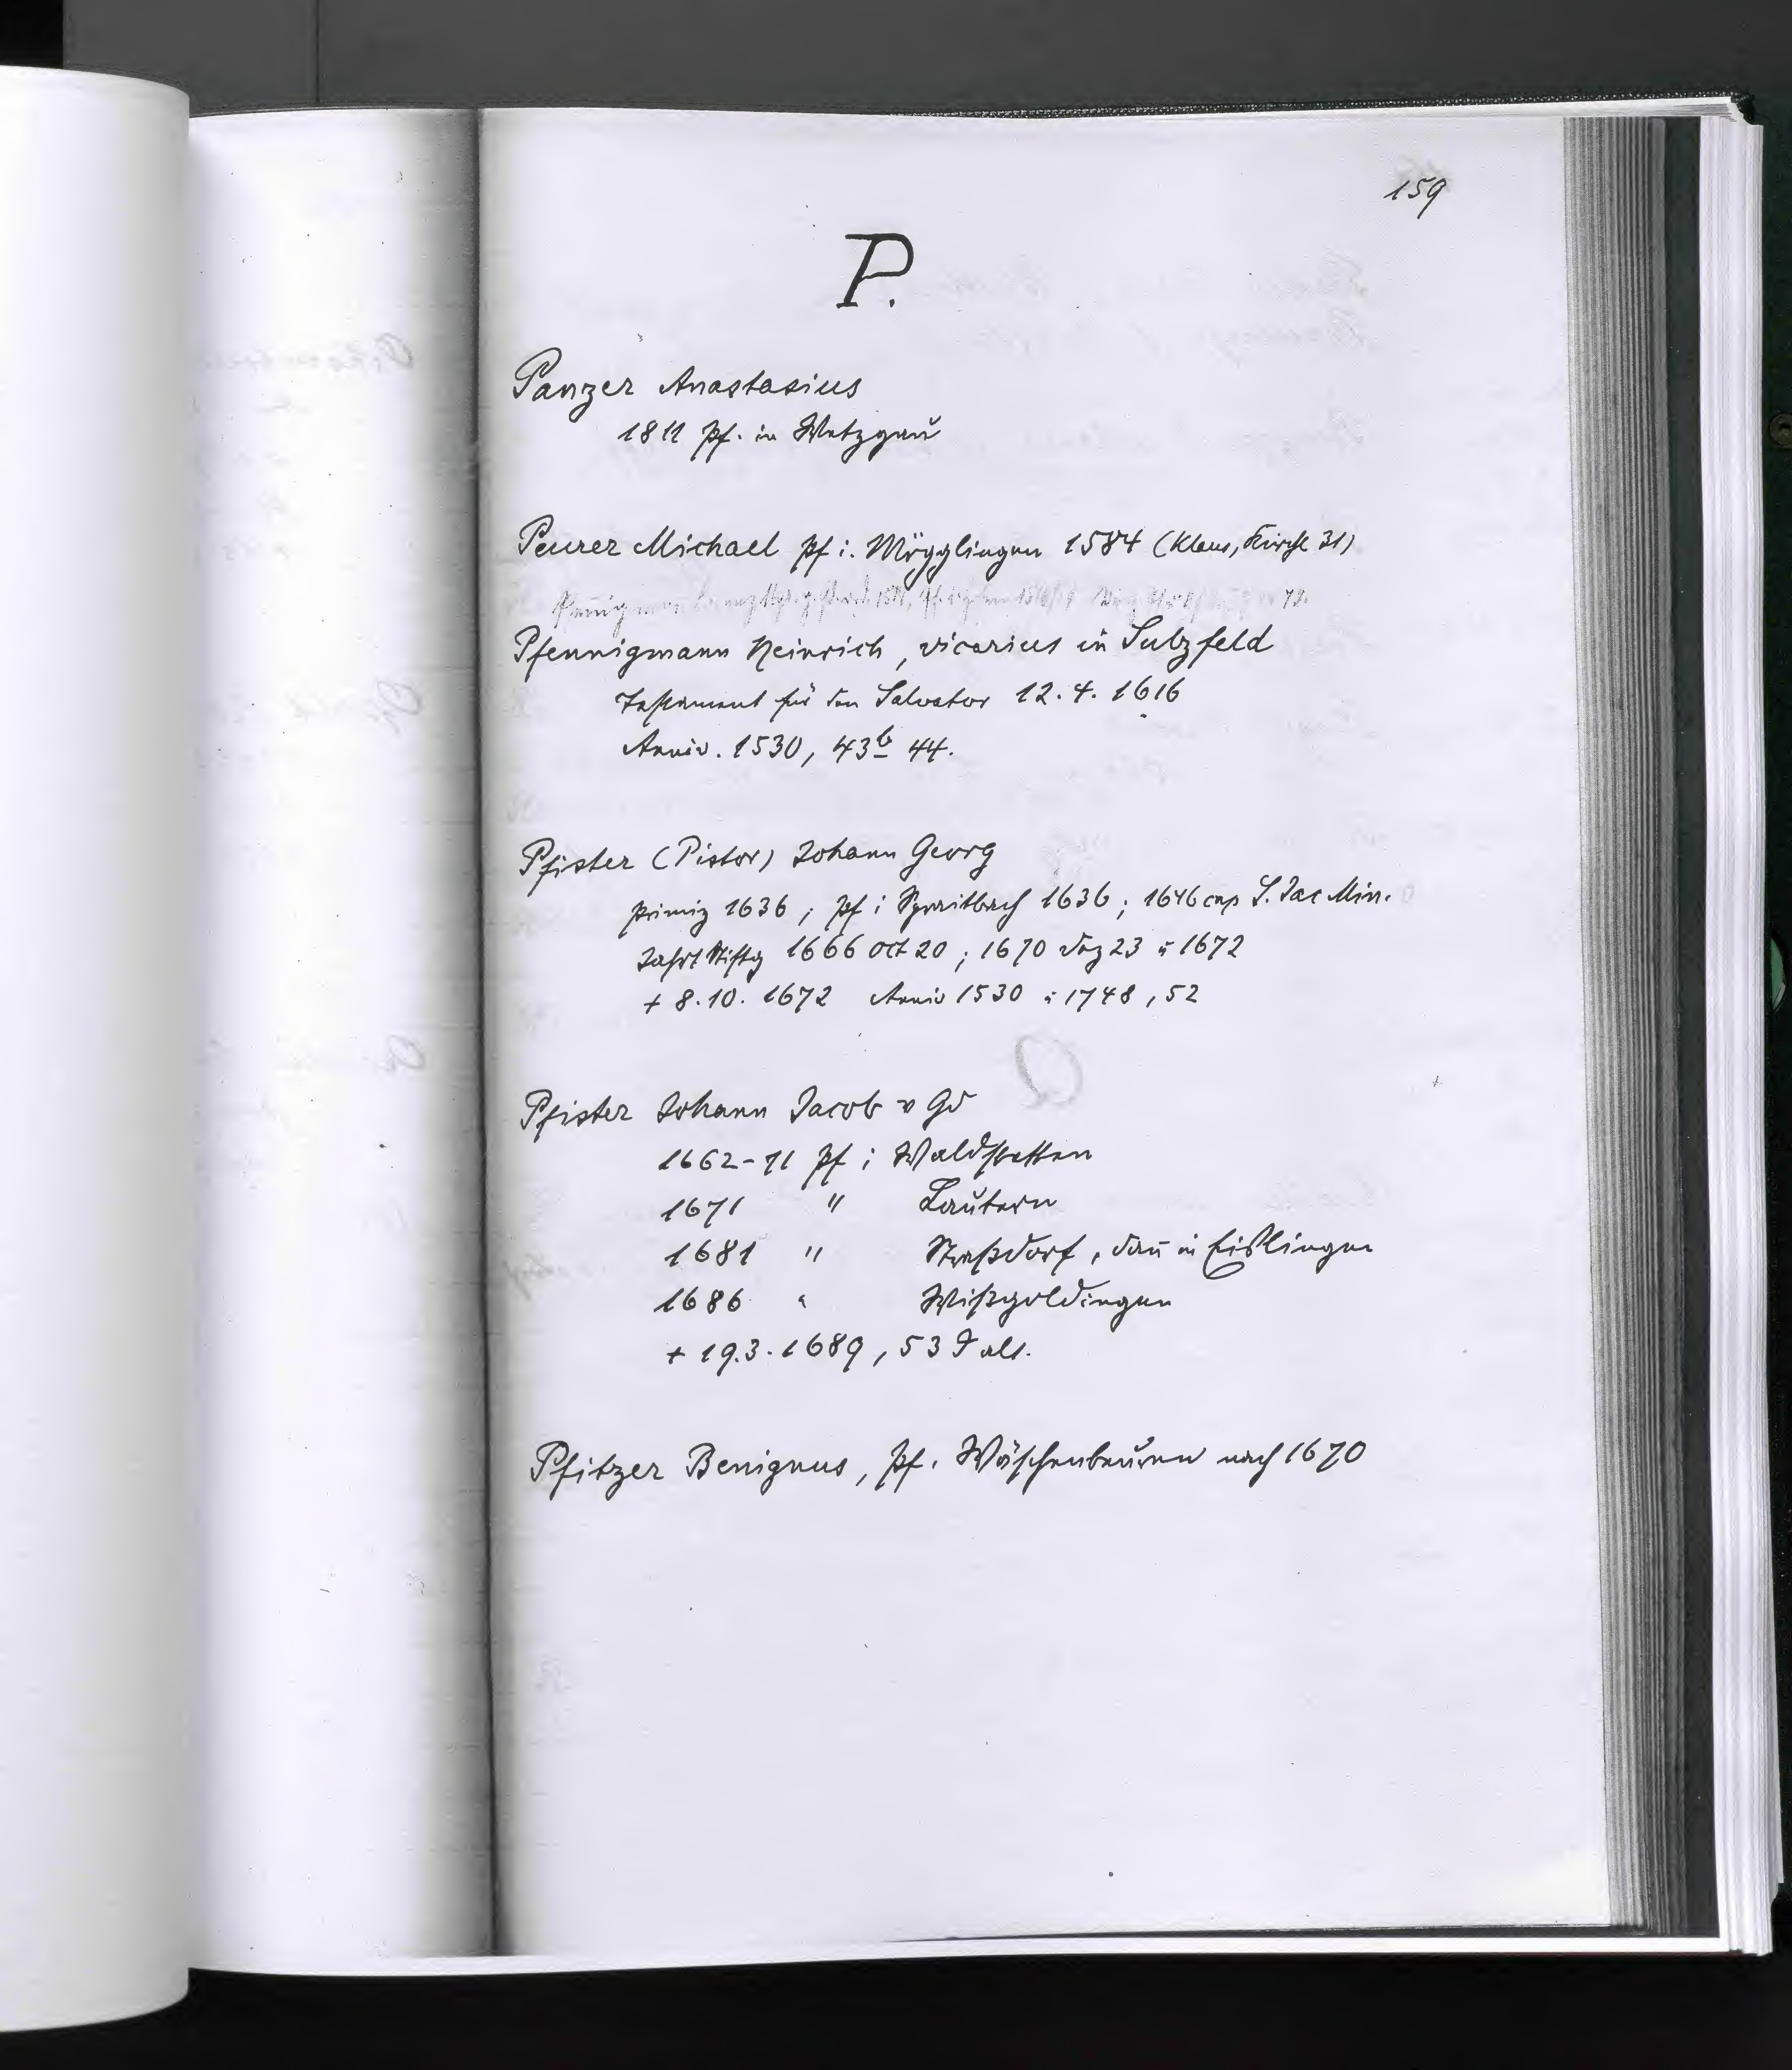 159
P.
Panzer Anastasius
1811 Pf. in Wetzgau
Peurer Michael Pf i. Mögglingen 1584 (Klaus, Kirche 31)
Pfennigmann Heinrich, vicarius in Sulzfeld
Testament für den Salvator 12.4.1616
Anniv. 1530, 43b 44.
Pfister (Pistor) Johann Georg
Primiz 1636; Pf i Spraitbach 1636; 1646 cap S. Jac Min.
Jahrt Stiftg 1666 Oct 20; 1670 Dez 23 u 1672
+ 8.10.1672 Anniv 1530 u 1748, 52
Pfister Johann Jacob v Gd
1662-71 Pf i Waldstetten
1671 " Lautern
1681 " Straßdorf, dan̄ in Eislingen
1686 " Wißgoldingen
+ 19.3.1689, 53 J alt.
Pfitzer Benignus, Pf. Wäschenbeuren nach 1670